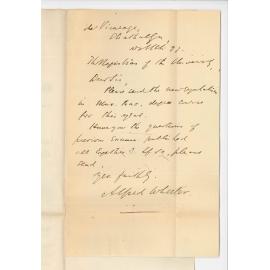 The Registrar of the University,
Dear Sir,
Please send the new regulations
in Mus. Bac. degree course
for this year.
Have you the questions of
previous exams published
all together? If so, please
send.
Yrs faithfully,
Alfred Wheeler.